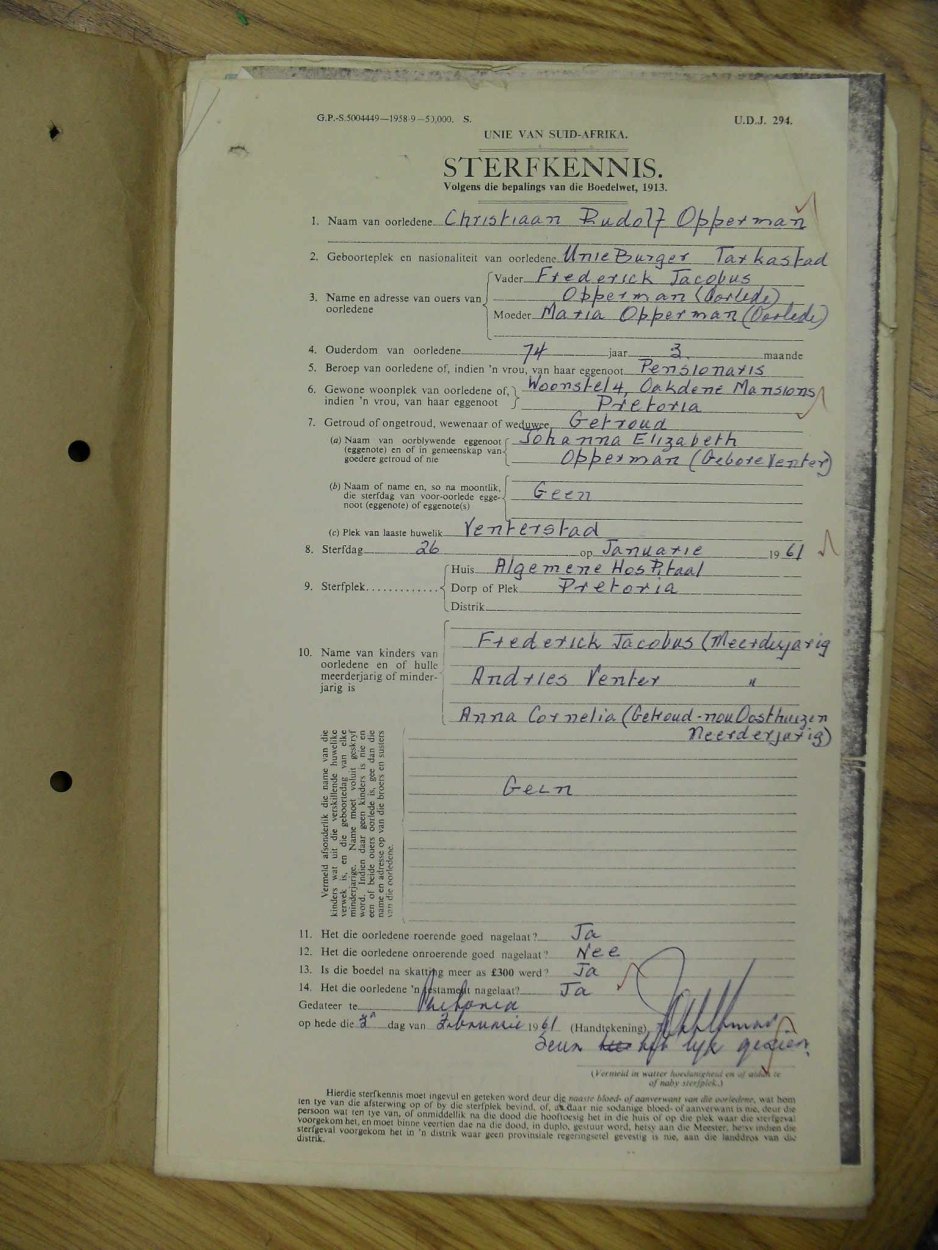 G.P.-S.5004449—1958-9—50,000. S. U.D.J. 294.
UNIE VAN SUID-AFRIKA.
STERFKENNIS.
Volgens die bepalings van die Boedelwet, 1913.
1. Naam van oorledene Christiaan Rudolf Opperman
2. Geboorteplek en nasionaliteit van oorledene UnieBurger Tarkastad
3. Name en adresse van ouers van oorledene
Vader Frederick Jacobus
Opperman (Oorlede)
Moeder Maria Opperman (Oorlede)
4. Ouderdom van oorledene 74 jaar 3 maande
5. Beroep van oorledene of, indien 'n vrou, van haar eggenoot Pensionaris
6. Gewone woonplek van oorledene of, Woonstel 4, Oakdene Mansions
indien 'n vrou, van haar eggenoot Pretoria
7. Getroud of ongetroud, wewenaar of weduwee Getroud
(a) Naam van oorblywende eggenoot Johanna Elizabeth
(eggenote) en of in gemeenskap van
goedere getroud of nie Opperman (Gebore Venter)
(b) Naam of name en, so na moontlik,
die sterfdag van voor-oorlede egge- Geen
noot (eggenote) of eggenote(s)
(c) Plek van laaste huwelik Venterstad
8. Sterfdag 26 op Januarie 1961
9. Sterfplek
Huis Algemene Hospitaal
Dorp of Plek Pretoria
Distrik
10. Name van kinders van
oorledene en of hulle
meerderjarig of minder-
jarig is
Frederick Jacobus (Meerderjarig
Andries Venter "
Anna Cornelia (Getroud-nou Oosthuizen
Meerderjarig)
Vermeld afsonderlik die name van die
kinders wat uit die verskillende huwelike
verwek is, en die geboortedag van elke
minderjarige. Name moet voluit geskryf
word. Indien daar geen kinders is nie en
een of beide ouers oorlede is, gee dan die
name en adresse op van die broers en susters
van die oorledene.
Geen
11. Het die oorledene roerende goed nagelaat? Ja
12. Het die oorledene onroerende goed nagelaat? Nee
13. Is die boedel na skatting meer as £300 werd? Ja
14. Het die oorledene 'n testament nagelaat? Ja
Gedateer te Pretoria
op hede die dag van Februarie 1961 (Handtekening)
Seun het lyk gesien.
(Vermeld in watter hoedanigheid en of aldan te
of naby sterfplek.)
Hierdie sterfkennis moet ingevul en geteken word deur die naaste bloed- of aanverwant van die oorledene, wat hom
ten tye van die afsterwing op of by die sterfplek bevind, of, as daar nie sodanige bloed- of aanverwant is nie, deur die
persoon wat ten tye van, of onmiddellik na die dood die hooftoesig het in die huis of op die plek waar die sterfgeval
voorgekom het, en moet binne veertien dae na die dood, in duplo, gestuur word, hetsy aan die Meester, hetsy indien die
sterfgeval voorgekom het in 'n distrik waar geen provinsiale regeringsetel gevestig is nie, aan die landdros van die
distrik.